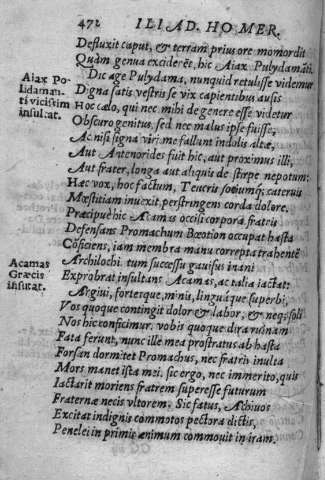 472 ILIAD. HOMER.
Defluxit caput, & terram prius ore momordit
Quàm genua exciderēt, hic Aiax Pulydamāti.
Aiax Po-
lidaman-
ti vicissim
insultat.
Dic age Pulydama, nunquid retulisse videmur
Digna satis vestris se vix capientibus ausis
Hoc calo, qui nec mihi de genere esse videtur
Obscuro genitus, sed nec malus ipse fuisse,
Ac nisi signa viri me fallunt indolis altæ,
Aut Antenorides fuit hic, aut proximus illi,
Aut frater, longa aut aliquis de stirpe nepotum:
Hæc vox, hoc factum, Teucris sociumq; cateruis
Mæstitiam inuexit, perstringens corda dolore.
Præcipuè hic Acamas occisi corpora fratris
Defensans Promachum Bæotion occupat hasta
Cōficiens, iam membra manu correpta trahentē
Acamas
Græcis
insultat.
Archilochi. tum successu gauisus inani
Exprobrat insultans Acamas, ac talia iactat:
Argiui, fortesque, minis, linguáque superbi,
Vos quoque contingit dolor & labor, & neq; soli
Nos hic conficimur. vobis quoque dira ruinam
Fata ferunt, nunc ille mea prostratus ab hasta
Forsan dormitet Promachus, nec fratris inulta
Mors manet ista mei. sic ergo, nec immeritò, quis
Iactarit moriens fratrem superesse futurum
Fraternæ necis vltorem. Sic fatus, Achiuos
Excitat indignis commotos pectora dictis,
Penelei in primis animum commouit in iram.